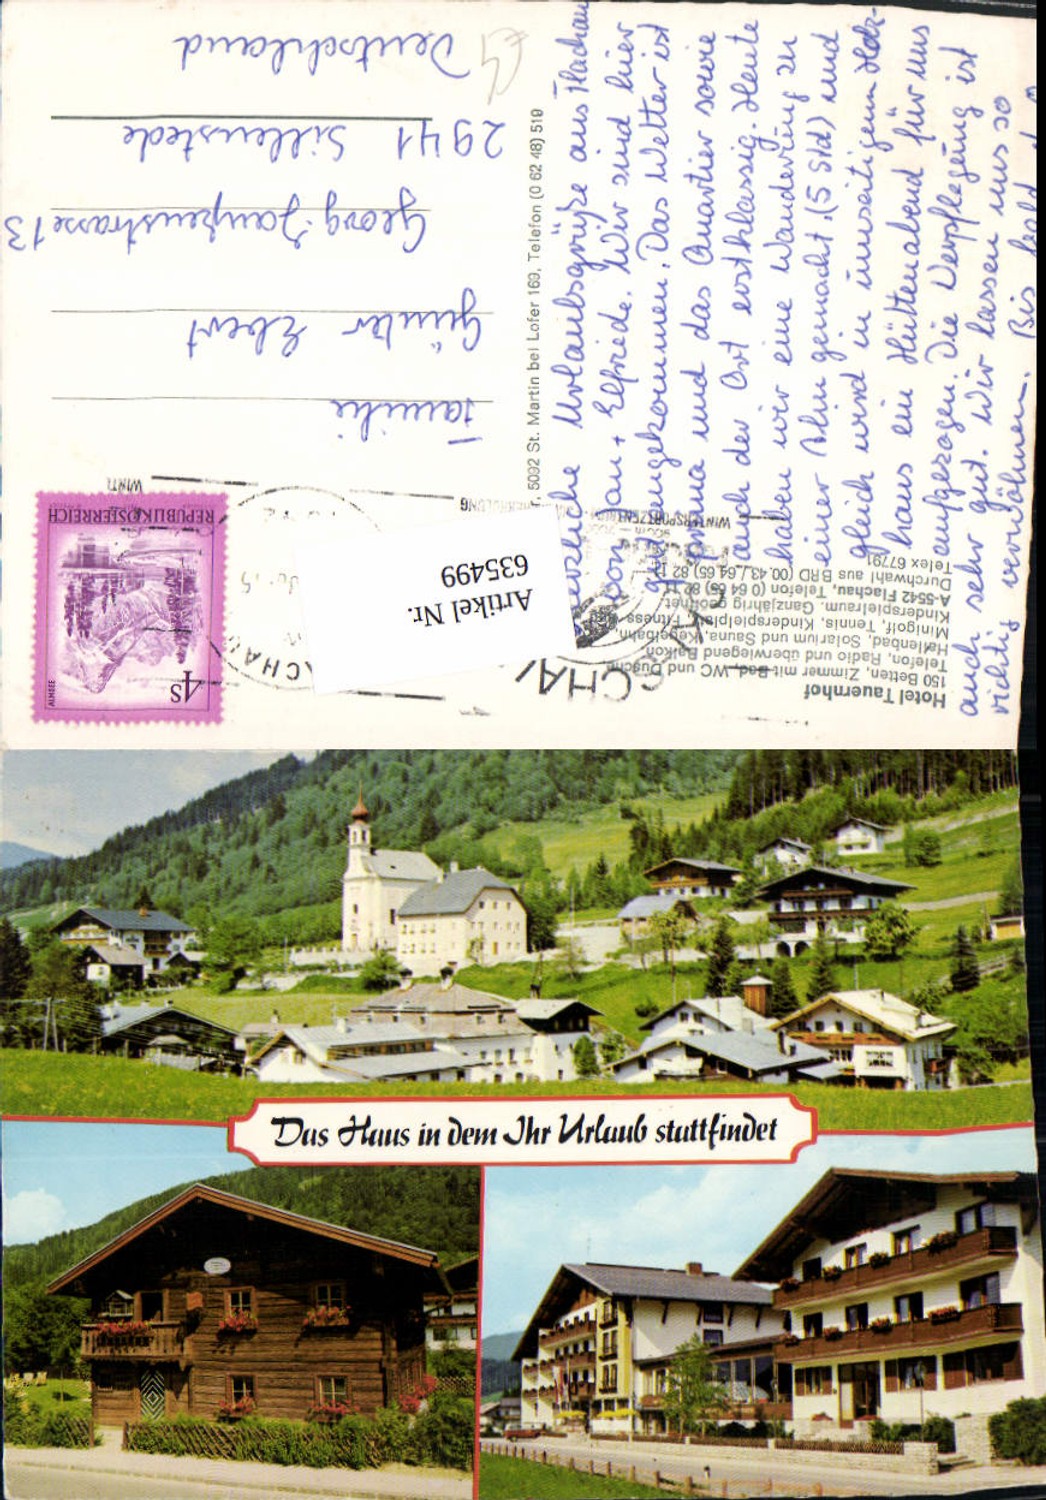 Hotel Tauernhof
150 Betten, Zimmer mit Bad, WC und Dusche,
Telefon, Radio und überwiegend Balkon,
Hallenbad, Solarium und Sauna, Kegelbahn,
Minigolf, Tennis, Kinderspielplatz, Fitness
Kinderspielraum. Ganzjährig geöffnet.
A-5542 Flachau, Telefon (0 64 65) 82 11
Durchwahl aus BRD (00 43 / 64 65) 82
Telex 67791
Herzliche Urlaubsgrüße aus Flachau
von Jan + Elfriede. Wir sind hier
gut angekommen. Das Wetter ist
prima und das Quartier sowie
auch der Ort erstklassig. Heute
haben wir eine Wanderung zu
einer Alm gemacht (5 Std) und
gleich wird in umseitigem Holz-
haus ein Hüttenabend für uns
aufgezogen. Die Verpflegung ist
auch sehr gut. Wir lassen uns so
richtig verwöhnen. Bis bald
5092 St. Martin bei Lofer 169, Telefon (0 62 48) 519
REPUBLIK ÖSTERREICH
ALMSEE
4S
WINTERSPORTZENTRUM
Artikel Nr.
635499
Familie
Günter Ebert
Georg-Janßenstrasse 13
2941 Sillenstede
Deutschland
Das Haus in dem Ihr Urlaub stattfindet